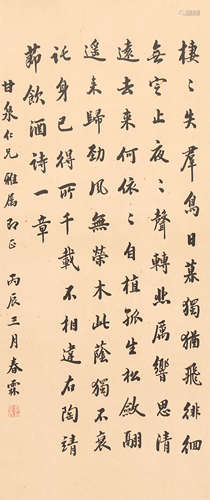 棲〻失羣鳥日暮獨猶飛徘徊
無定止夜〻聲轉悲厲響思清
遠去來何依〻自植孤生松斂翮
遙來歸勁風無榮木此蔭獨不衰
託身已得所千載不相違右陶靖
節飲酒詩一章
甘泉仁兄雅屬即正 丙辰三月春霖